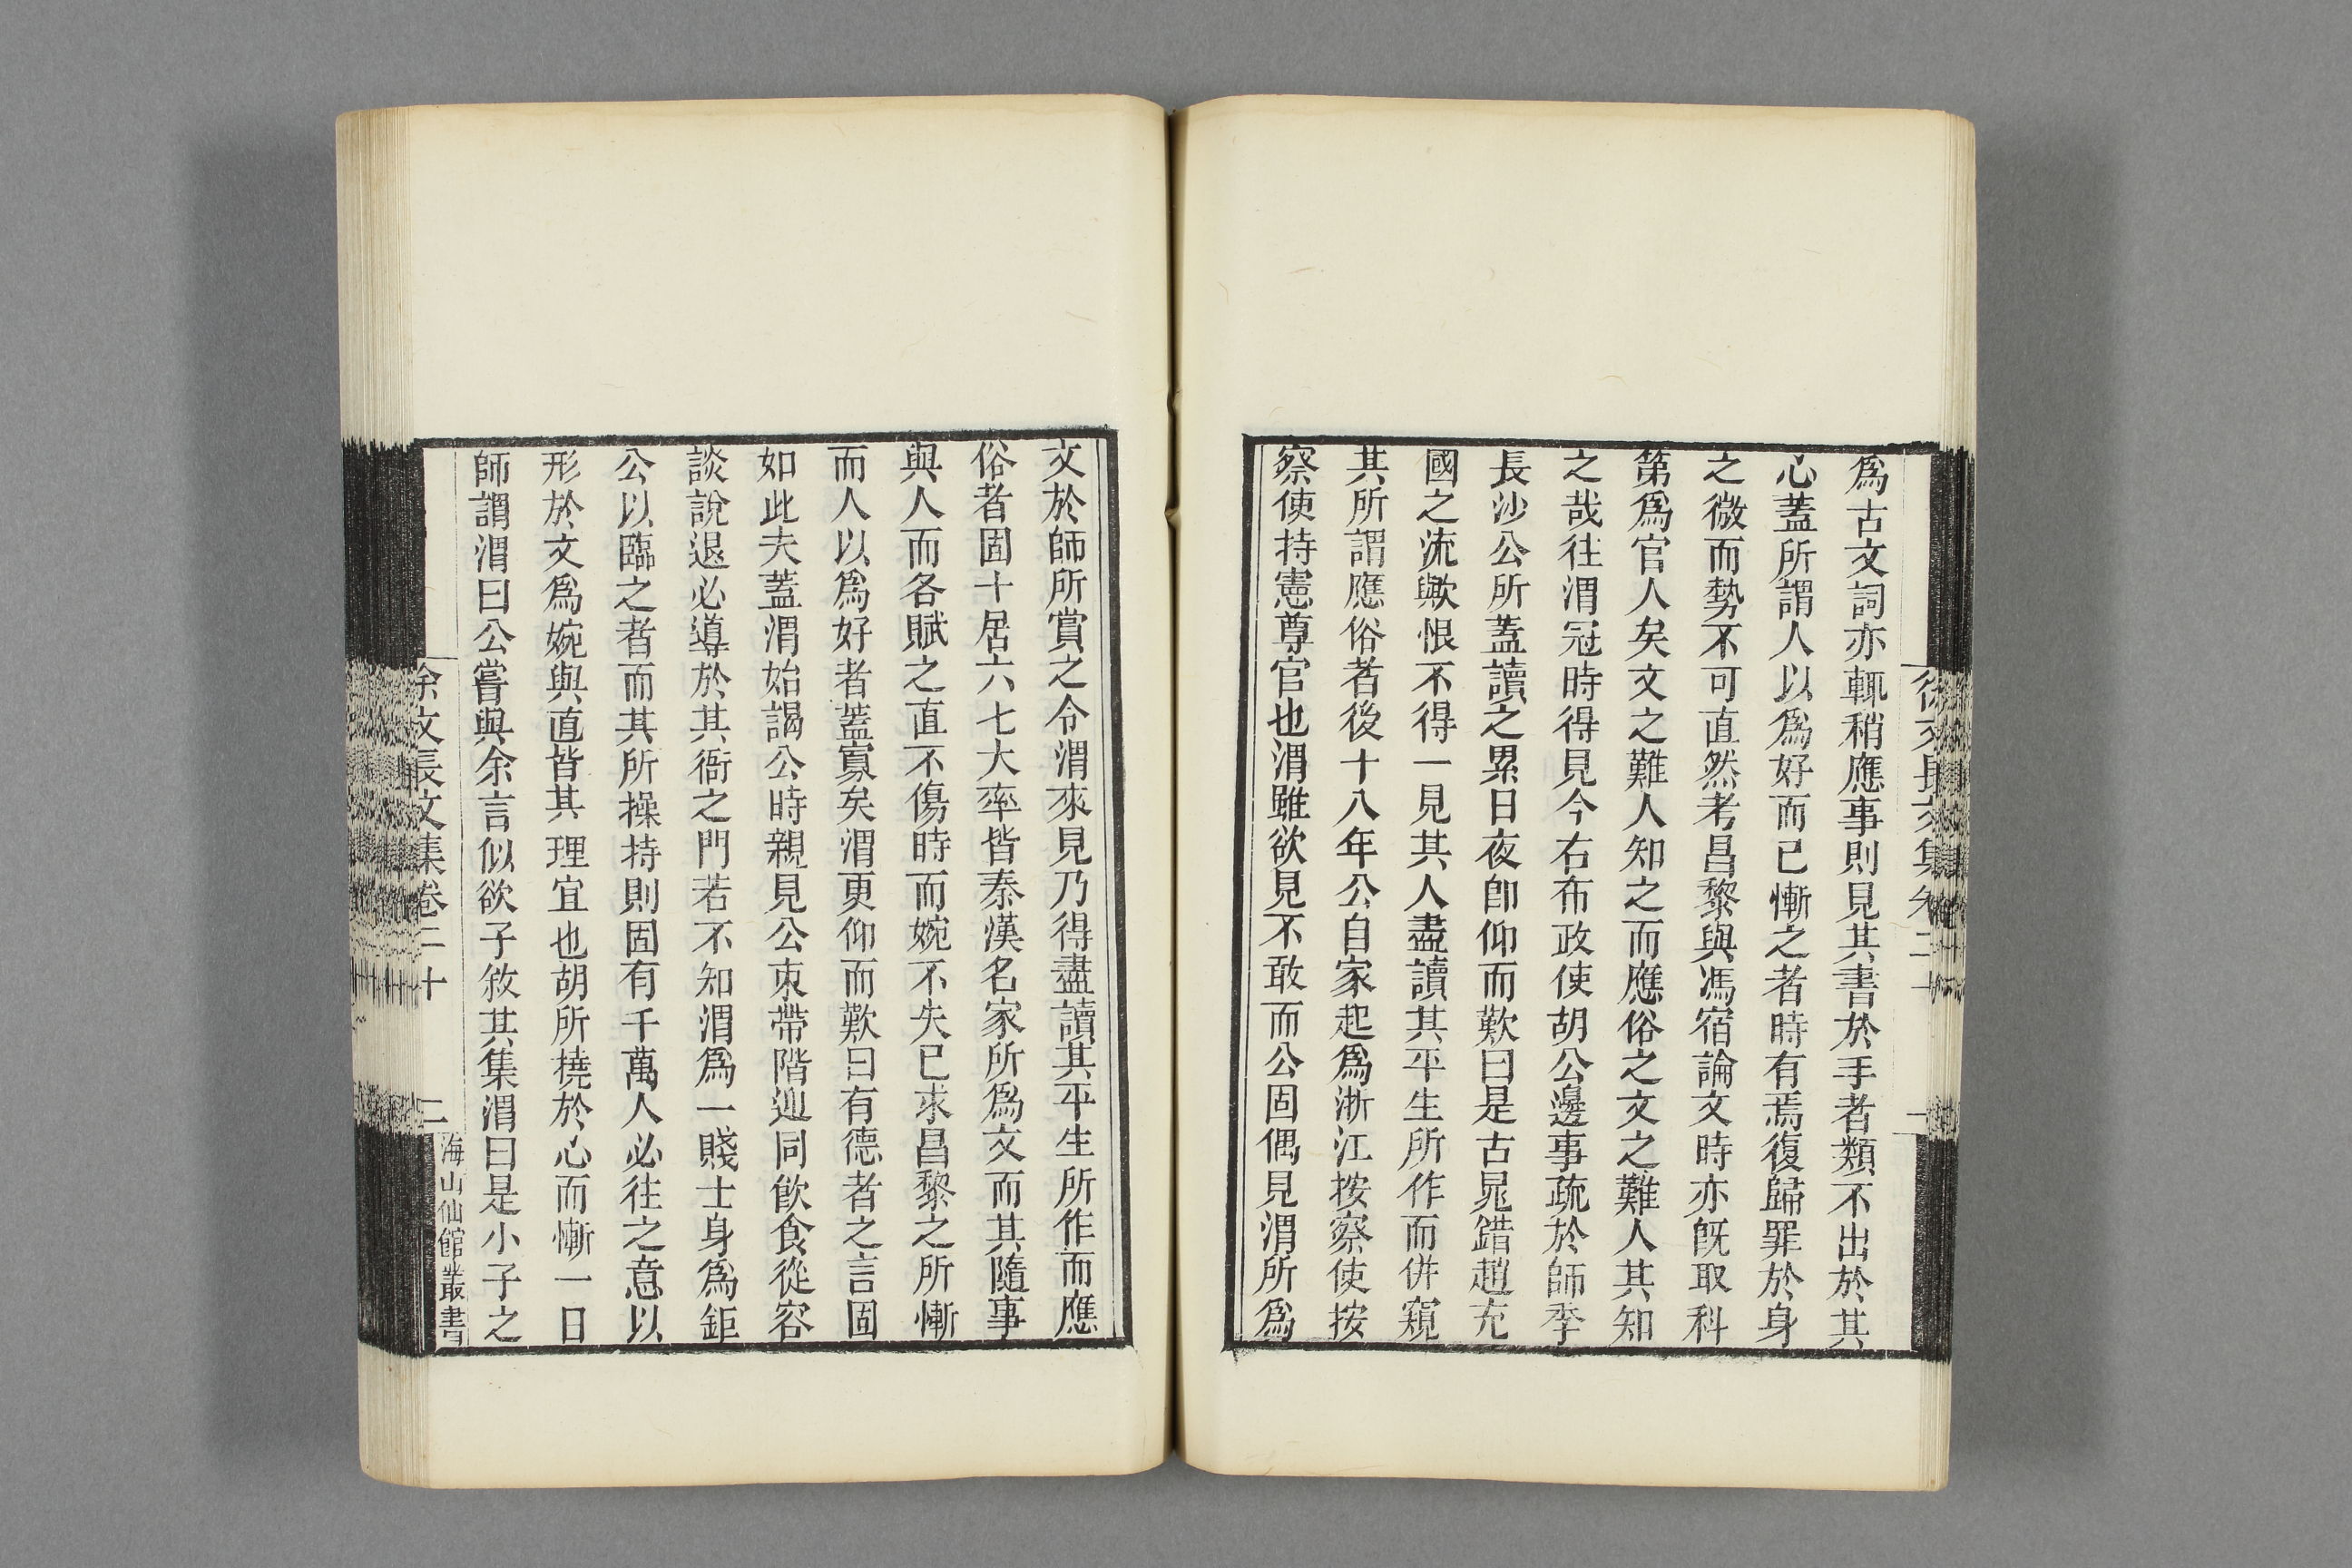 為古文詞亦輒稍應事則見其書於手者類不出於其
心蓋所謂人以為好而已慚之者時有焉復歸罪於身
之微而勢不可直然考昌黎與馮宿論文時亦旣取科
第為官人矣文之難人知之而應俗之文之難人其知
之哉往渭冠時得見今右布政使胡公邊事疏於師季
長沙公所蓋讀之累日夜卽仰而歎曰是古晁錯趙充
國之流歟恨不得一見其人盡讀其平生所作而併窺
其所謂應俗者後十八年公自家起為浙江按察使按
察使持憲尊官也渭雖欲見不敢而公固偶見渭所為
文於師所賞之令渭來見乃得盡讀其平生所作而應
俗者固十居六七大率皆秦漢名家所為文而其隨事
與人而各賦之直不傷時而婉不失已求昌黎之所慚
而人以為好者蓋寡矣渭更仰而歎曰有德者之言固
如此夫蓋渭始謁公時親見公束帶階迎同飲食從容
談說退必導於其衙之門若不知渭為一賤士身為鉅
公以臨之者而其所操持則固有千萬人必往之意以
形於文為婉與直皆其理宜也胡所撓於心而慚一日
師謂渭曰公嘗與余言似欲子敘其集渭曰是小子之
徐文長文集卷二十 二
海山仙館叢書